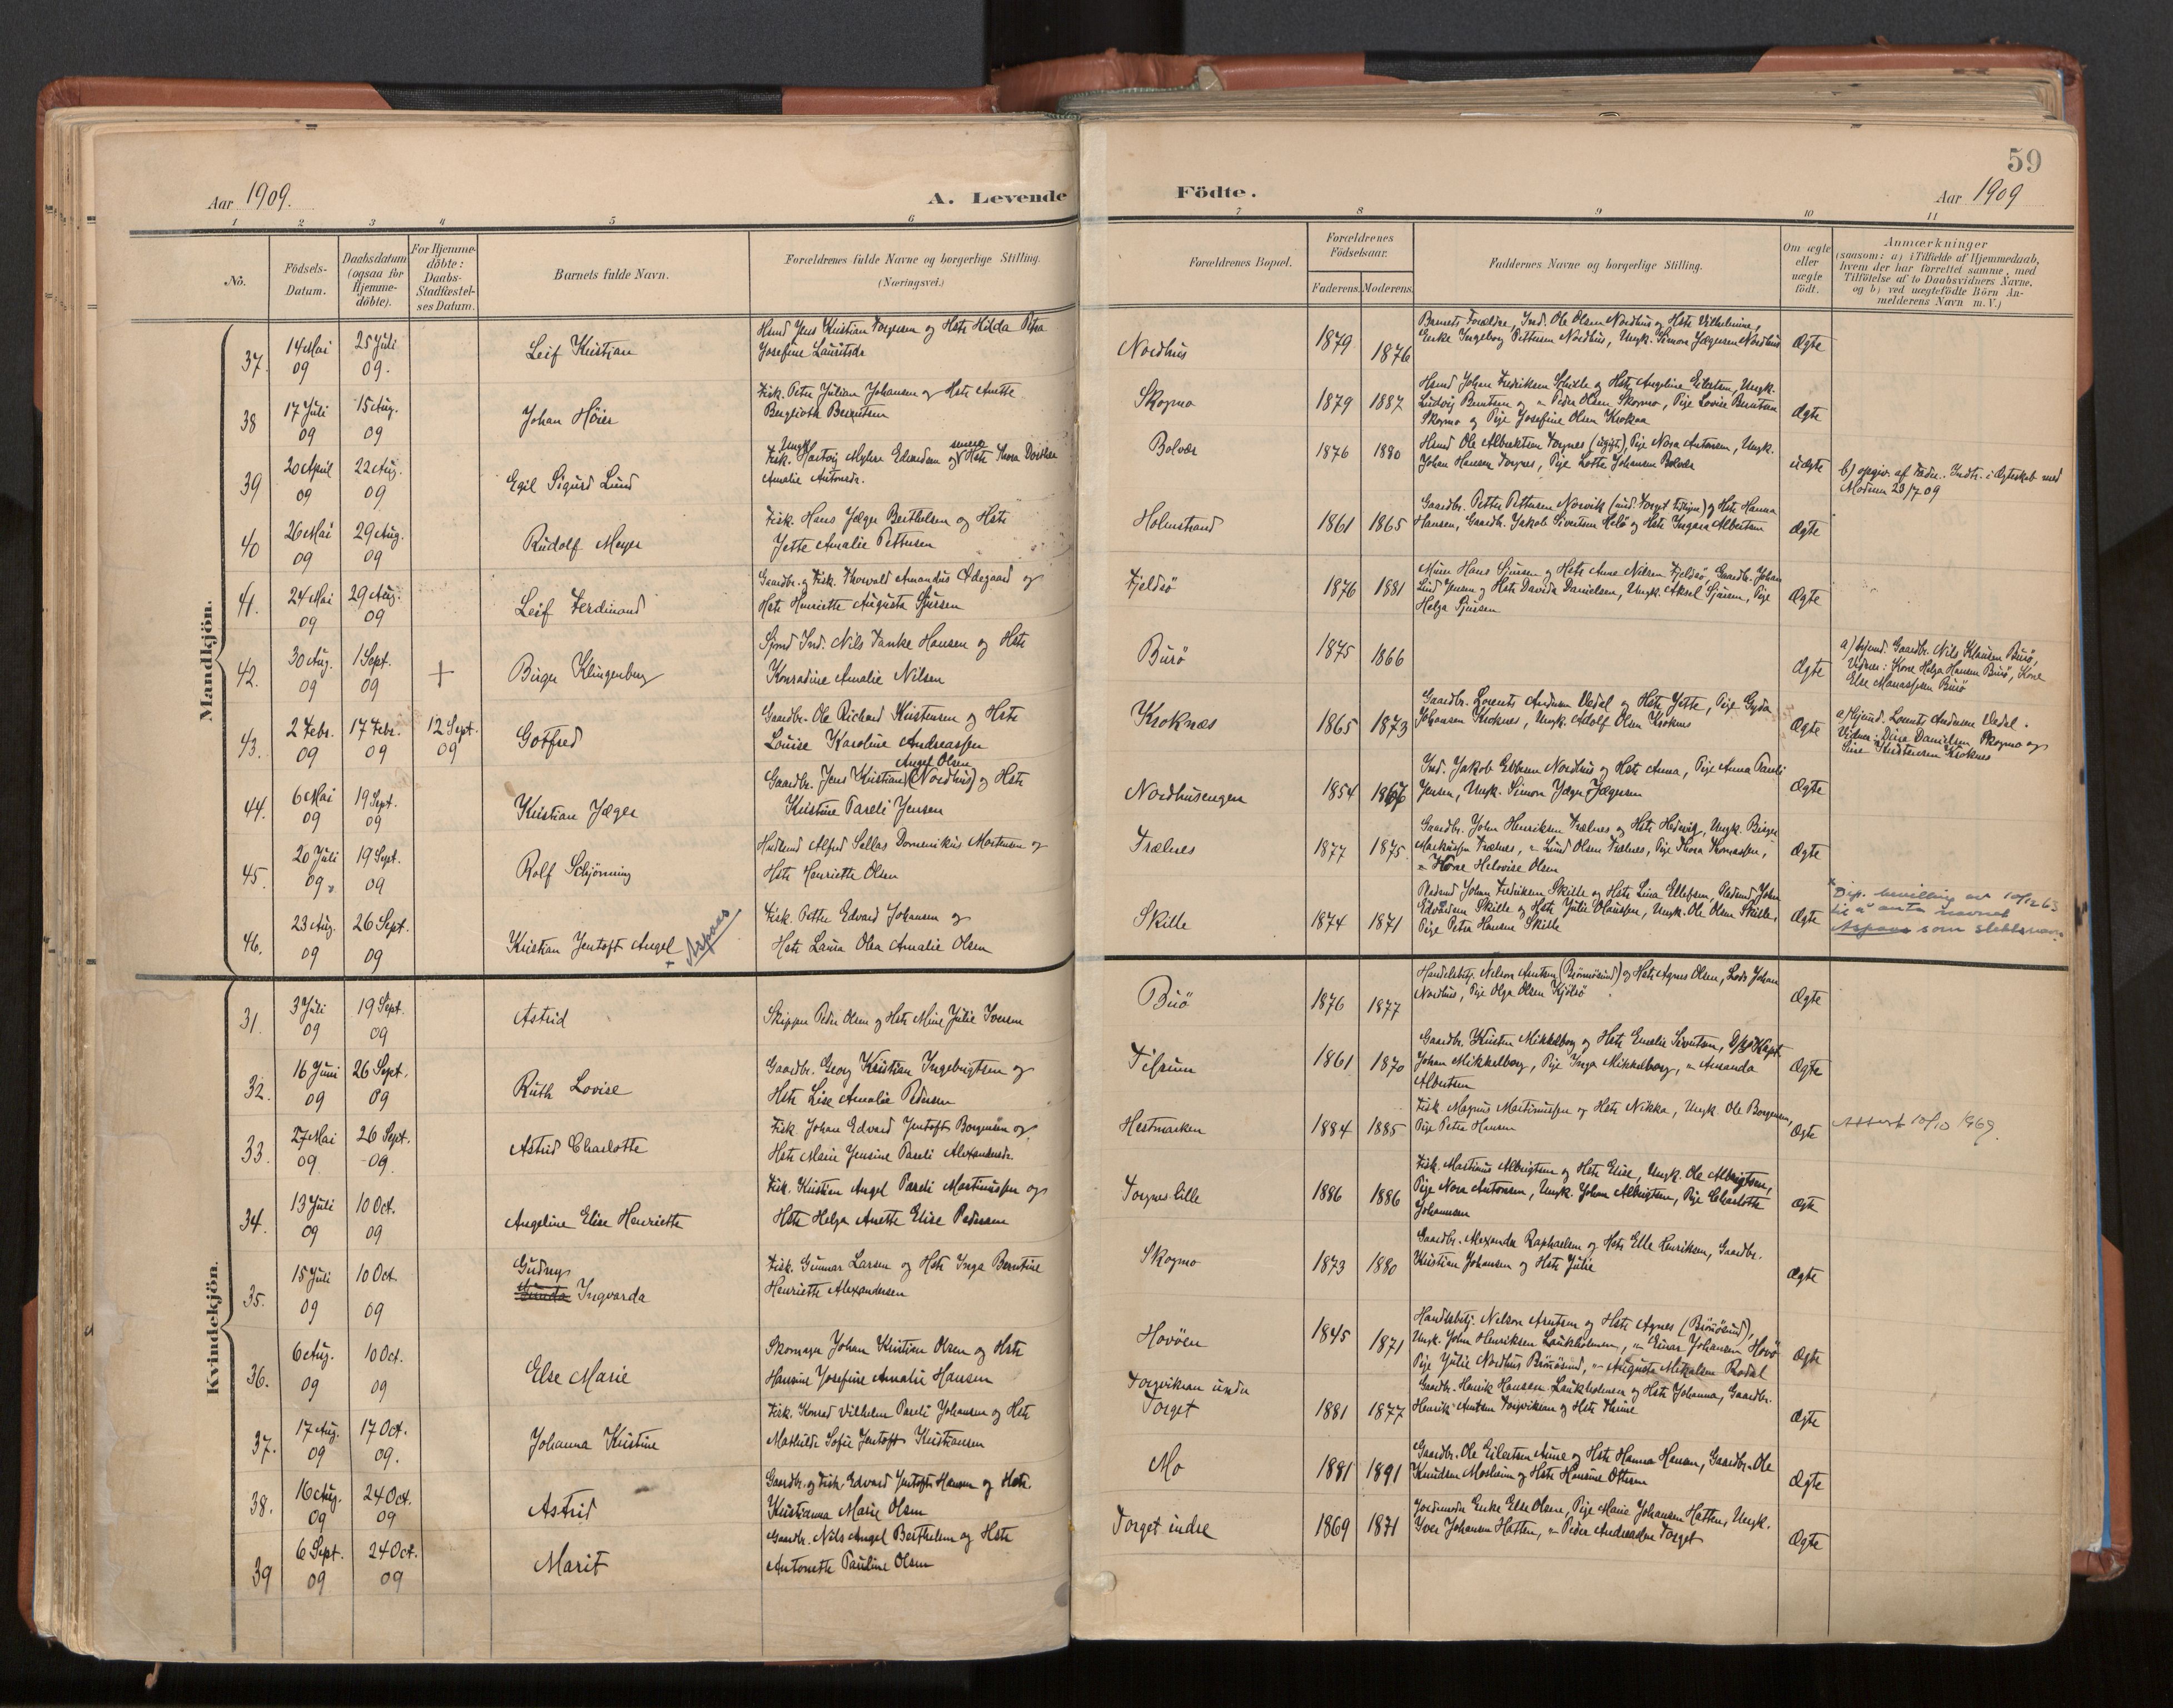 59
Aar 1909.
A. Levende Födte.
Aar 1909
1 2 3 4 5 6 7 8 9 10 11
No.
Födsels-
Datum.
Daabsdatum
(ogsaa for
Hjemme-
döbte).
For Hjemme-
döbte:
Daabs-
Stadfæstel-
ses Datum.
Barnets fulde Navn.
Forældrenes fulde Navne og borgerlige Stilling.
(Næringsvei.)
Forældrenes Bopæl.
Forældrenes
Födselsaar.
Faderens. Moderens.
Faddernes Navne og borgerlige Stilling.
Om ægte
eller
uægte
födt.
Anmærkninger
(saasom: a) i Tilfælde af Hjemmedaab,
hvem der har forrettet samme, med
Tilföielse af to Daabsvidners Navne,
og b) ved uægtefödte Börn An-
melderens Navn m. V.)
Mandkjön.
37.
14 Mai
09
25 Juli
09.
Leif Kristian
Hsmd Jens Kristian Torgersen og Hstr Hilda Petra
Josefine Lauritsdr
Nordhus
1879
1876
Barnets Forældre, Ind. Ole Olsen Nordhus og Hstr Vilhelmine,
Enke Ingeborg Pettersen Nordhus, Ungk. Simon Jægersen Nordhus
Ægte
38
17 Juli
09
15 Aug.
09
Johan Höier
Fisk. Peter Julian Johansen og Hstr Anette
Berglioth Berntsen
Skogmo
1879
1887
Hsmd Johan Fredriksen Skille og Hstr Angeline Eilertsen, Ungk.
Ludvig Berntsen og " Peder Olsen Skogmo, Pige Lovise Berntsen
Skogmo og Pige Josefine Olsen Kroknes
Ægte
39
20 April
09
22 Aug.
09
Egil Sigurd Lund
Ungk.
Fisk. Hartvig Myhre Edvardsen og Hstr Thora Dorthea
Amalie Antonsdr.
Bolvær
1876
1880
Hsmd Ole Albrektsen Torgnes (ugift), Pige Nora Antonsen, Ungk.
Johan Hansen Torgnes, Pige Lotte Johansen Bolvær
uægte
b) opgiv. af Fader. Indtr. i Ægteskab med
Moderen 23/7 09
40
26 Mai
09
29 Aug.
09
Rudolf Meyer
Fisk. Hans Jæger Berthelsen og Hstr
Jette Amalie Pettersen
Holmstrand
1861
1865
Gaardbr. Petter Pettersen Norvik og Hstr Hanna
Hansen, Gaardbr. Jakob Sivertsen Helö og Hstr Ingara Albertsen
Ægte
41.
24 Mai
09
29 Aug.
09
Leif Ferdinand
Gaardbr. og Fisk. Thorvald Amandus Ødegaard og
Hstr Henriette Augusta Sjursen
Fjeldsö
1876
1881
Murer Hans Sjursen og Hstr Anne Nilsen Fjeldsö, Gaardbr. Johan
Lind Jensen og Hstr Davida Danielsen, Ungk. Aksel Sjursen, Pige
Helga Sjursen
Ægte
42.
30 Aug.
09
1 Sept.
09
+
Birger Klingenberg
Sjmd Ind. Nils Tanke Hansen og Hstr
Konradine Amalie Nilsen
Burö
1875
1866
Ægte
a) hjemd. Gaardbr. Nils Klausen Burö,
Vidner: Kone Helga Hansen Burö, Kone
Else Manassen Burö
43.
2 Febr.
09
17 Febr.
09
12 Sept.
09
Gotfred
Gaardbr. Ole Richard Kristensen og Hstr
Louise Karoline Andreassen
Kroknæs
1865
1873
Gaardbr. Lorents Andersen Vedal og Hstr Jette, Pige Gyda
Johansen Kroknes, Ungk. Adolf Olsen Kroknes
Ægte
a) Hjemd. Lorents Andersen Vedal.
Vidner: Dina Danielsen, Skogmo og
Sine Kristensen Kroknes
44.
6 Mai
09
19 Sept.
09
Kristian Jæger
Angel Olsen
Gaardbr. Jens Kristian (Nordhus) og Hstr
Kristine Pareli Jensen
Nordhusengen
1854
1867
Ind. Jakob Ebbesen Nordhus og Hstr Anna, Pige Anna Pareli
Jensen, Ungk. Simon Jæger Jægersen
Ægte
45.
20 Juli
09
19 Sept.
09
Rolf Schjönning
Husmd Alfred Sellas Domenikus Mortensen og
Hstr Henriette Olsen
Trælnes
1877
1875
Gaardbr. John Henriksen Trælnes og Hstr Hedevig, Ungk. Birger
Markussen Trælnes, " Lund Olsen Trælnes, Pige Thora Thomassen,
" Helovise Olsen
Ægte
46.
23 Aug.
09
26 Sept.
09
Kristian Jentoft Angel + Aspaas
Fisk. Petter Edvard Johansen og
Hstr Laura Olea Amalie Olsen
Skille
1874
1871
Pladsmd Johan Fredriksen Skille og Hstr Lina Ellefsen, Pladsmd John
Edvardsen Skille og Hstr Julie Olaussen, Ungk. Ole Olsen Skille,
Pige Petra Hansen Skille
Ægte
x Dep. bevilling av 10/12 63
til å anta navnet
Aspaas som slektsnavn.
Kvindekjön.
31.
3 Juli
09
19 Sept.
09
Astrid
Skipper Peder Olsen og Hstr Mine Julie Iversen
Burö
1876
1877
Handelsbetj. Nelson Arntsen (Brönnösund) og Hstr Agnes Olsen, Lods Johan
Nordhus, Pige Olga Olsen Kjölsö
Ægte
32.
16 Juni
09
26 Sept.
09
Ruth Lovise
Gaardbr. Georg Kristian Ingebrigtsen og
Hstr Lise Amalie Pedersen
Tilrum
1861
1870
Gaardbr. Kristen Mikkelborg og Hstr Emelie Sivertsen, Kapt.
Johan Mikkelborg, Pige Inga Mikkelborg, " Amanda
Albertsen
Ægte
33.
27 Mai
09
26 Sept.
09.
Astrid Charlotte
Fisk. Johan Edvard Jentoft Borgersen og
Hstr Marie Jensine Pareli Alexandersdr.
Hestmarken
1884
1885
Fisk. Magnus Martinussen og Hstr Nikka, Ungk. Ole Borgersen,
Pige Petra Hansen
Ægte
Attest 10/10 1969.
34.
13 Juli
09
10 Oct.
09
Angeline Elise Henriette
Fisk. Kristian Angel Pareli Martinussen og
Hstr Helga Anette Elise Pedersen
Torgnes lille
1886
1886
Fisk. Martinus Albrigtsen og Hstr Elise, Ungk. Ole Albrigtsen,
Pige Nora Antonsen, Ungk. Johan Albrigtsen, Pige Charlotte
Johannesen
Ægte
35.
15 Juli
09
10 Oct.
09
Gudny
Ingvarda
Fisk. Gunnar Larsen og Hstr Inga Berntine
Henriette Alexandersen
Skogmo
1873
1880
Gaardbr. Alexander Raphaelsen og Hstr Elle Henriksen, Gaardbr.
Kristian Johansen og Hstr Julie
Ægte
36.
6 Aug.
09
10 Oct.
09
Else Marie
Skomager Johan Kristian Olsen og Hstr
Hansine Josefine Amalie Hansen
Havöen
1845
1871
Handelsbetj. Nelson Arntsen og Hstr Agnes (Brönösund),
Ungk. John Henriksen Laukholmen, " Einar Johansen Havö
Pige Julie Nordhus Brönösund, " Augusta Mikalsen Rodal
Ægte
37.
17 Aug.
09
17 Oct.
09.
Johanna Kristine
Fisk. Konrad Vilhelm Pareli Johansen og Hstr
Mathilde Sofie Jentoft Kristiansen
Torgvikran under
Torget
1881
1877
Gaardbr. Henrik Hansen Laukholmen og Hstr Johanna, Gaardbr.
Henrik Arntsen Torgvikran og Hstr Thrine
Ægte
38.
16 Aug.
09
24 Oct.
09
Astrid
Gaardbr. og Fisk. Edvard Jentoft Hansen og Hstr.
Kristianna Marie Olsen
Mo
1881
1891
Gaardbr. Ole Eilertsen Aune og Hstr Hanna Hansen, Gaardbr. Ole
Knudsen Mosheim og Hstr Hansine Ottersen
Ægte
39
6 Sept.
09
24 Oct.
09
Marit
Gaardbr. Nils Angel Berthelsen og Hstr
Antonette Pauline Olsen
Torget indre
1869
1871
Jordmoder Enke Else Olsen, Pige Marie Johansen Hatten, Ungk.
Iver Johansen Hatten, " Peder Andreassen Torget
Ægte